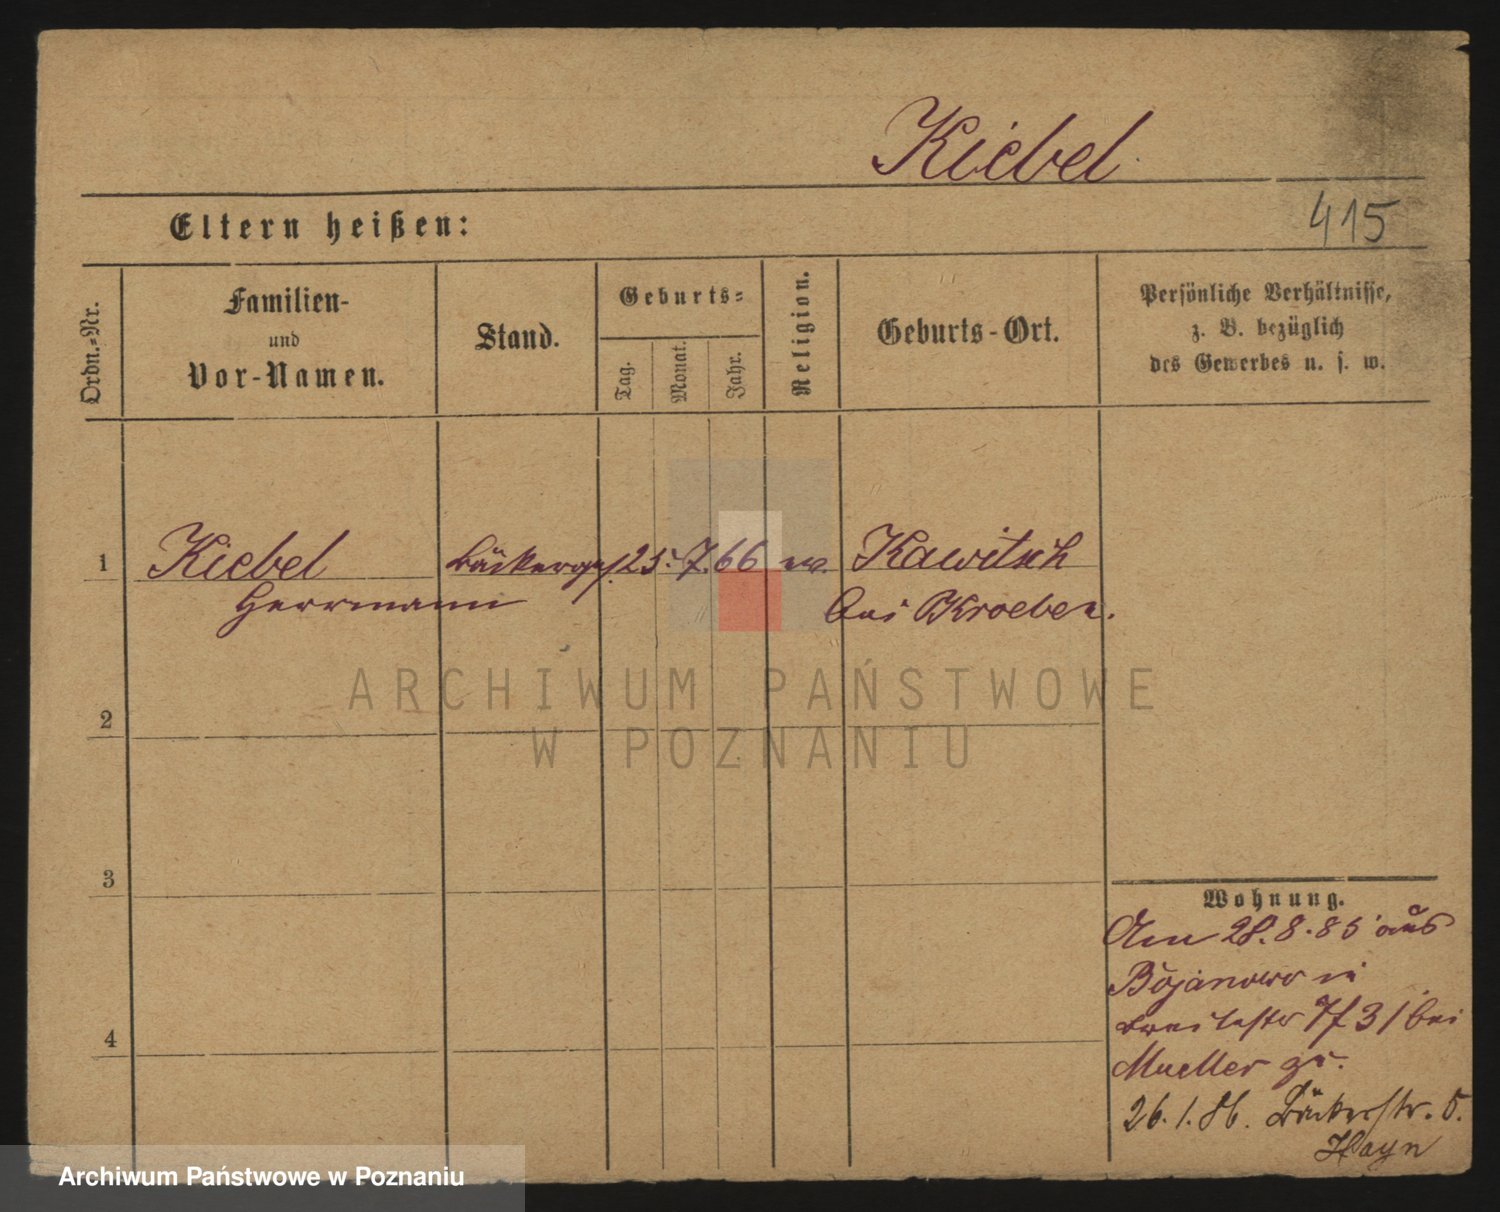 Kiebel
415
Eltern heißen:
Ordn.-Nr.
Familien-
und
Vor-Namen.
Stand.
Geburts-
Tag.
Monat.
Jahr.
Religion.
Geburts-Ort.
Persönliche Verhältnisse,
z. B. bezüglich
des Gewerbes u. s. w.
1 Kiebel Bäckerges. 25. 7. 66 ev. Kawitsch
Herrmann bei Kroeben.
2
3
4
Wohnung.
Am 28.8.85 aus
Bojanowo in
Breitestr 31 bei
Mueller
26.1.86. Bäckerstr. 5.
Hayn
ARCHIWUM PAŃSTWOWE
W POZNANIU
Archiwum Państwowe w Poznaniu